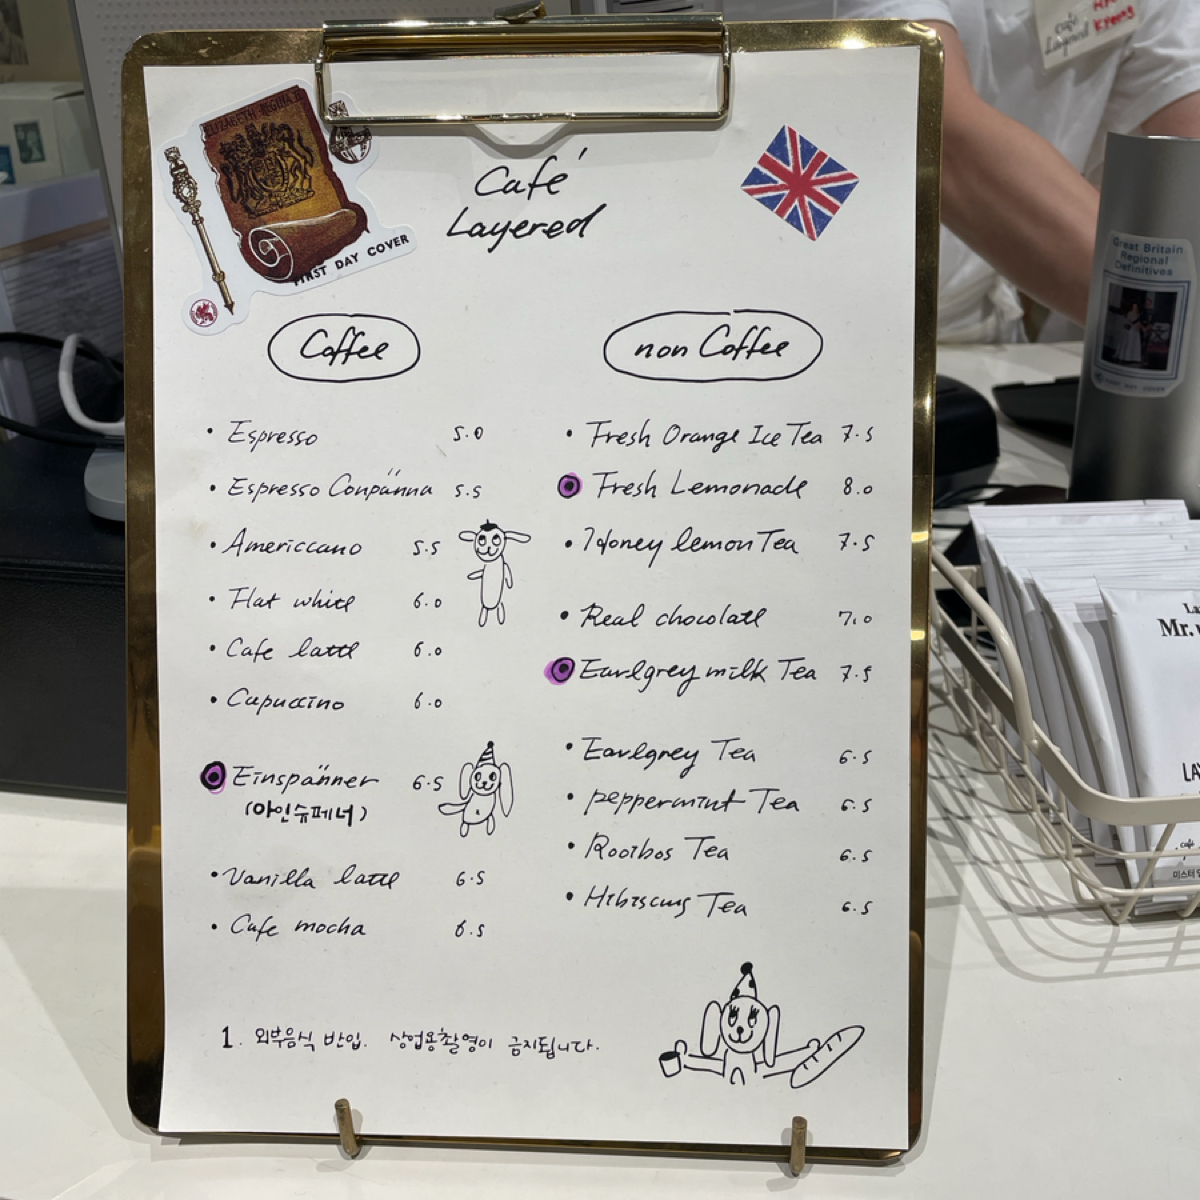 ELIZABETH REGINA II
FIRST DAY COVER
Café
Layered
Coffee
• Espresso 5.0
• Espresso Conpänna 5.5
• Americcano 5.5
• Flat white 6.0
• Cafe latte 6.0
• Capuccino 6.0
Einspänner 6.5
(아인슈페너)
• Vanilla latte 6.5
• Cafe mocha 6.5
non Coffee
• Fresh Orange Ice Tea 7.5
Fresh Lemonade 8.0
• Honey lemon Tea 7.5
• Real chocolate 7.0
Earlgrey milk Tea 7.5
• Earlgrey Tea 6.5
• peppermint Tea 6.5
• Rooibos Tea 6.5
• Hibiscus Tea 6.5
1. 외부음식 반입. 상업용촬영이 금지됩니다.
Café
Layered
Great Britain
Regional
Definitives
Mr.